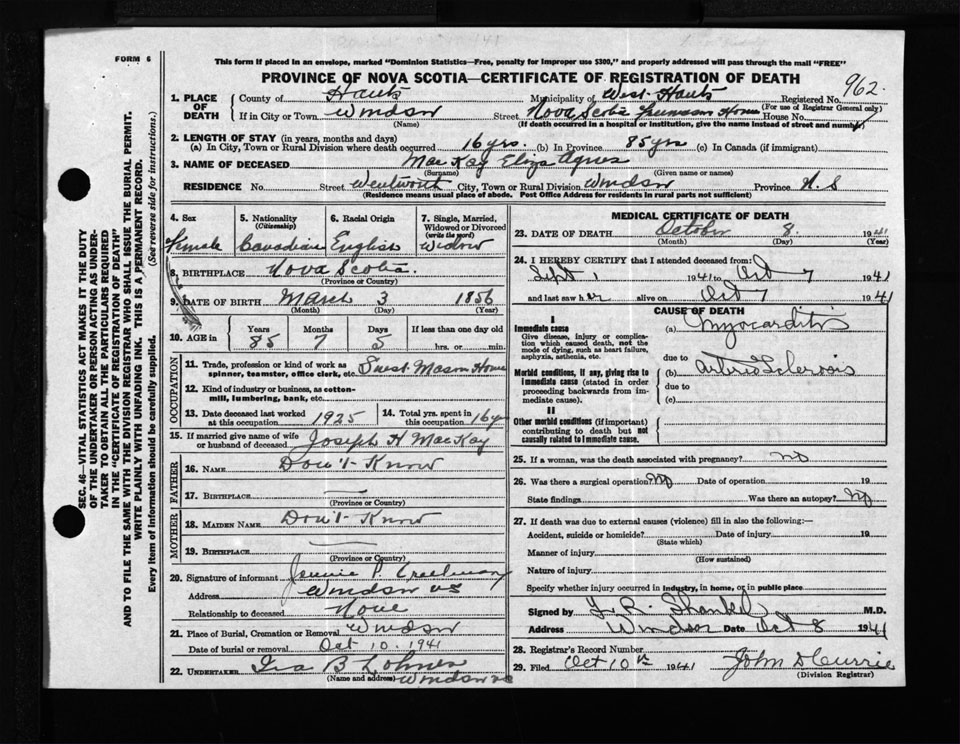 FORM 6
This form if placed in an envelope, marked "Dominion Statistics—Free, penalty for improper use $300," and properly addressed will pass through the mail "FREE"
PROVINCE OF NOVA SCOTIA—CERTIFICATE OF REGISTRATION OF DEATH
1. PLACE OF DEATH
County of Hants Municipality of West Hants Registered No. 962
(For use of Registrar General only)
If in City or Town Windsor Street Nova Scotia Freemason Home House No.
(Name) (If death occurred in a hospital or institution, give the name instead of street and number)
2. LENGTH OF STAY (in years, months and days)
(a) In City, Town or Rural Division where death occurred 16 yrs. (b) In Province 85 yrs (c) In Canada (if immigrant)
3. NAME OF DECEASED MacKay Eliza Agnes
(Surname) (Given name or names)
RESIDENCE No. Street Wentworth City, Town or Rural Division Windsor Province N.S
(Residence means usual place of abode. Post Office Address for residents in rural parts not sufficient)
4. Sex Female
5. Nationality (Citizenship) Canadian
6. Racial Origin English
7. Single, Married, Widowed or Divorced (write the word) Widow
8. BIRTHPLACE Nova Scotia
(Province or Country)
9. DATE OF BIRTH March 3 1856
(Month) (Day) (Year)
10. AGE in Years Months Days If less than one day old
85 7 5 hrs. or min.
OCCUPATION
11. Trade, profession or kind of work as spinner, teamster, office clerk, etc. Guest Mason Home
12. Kind of industry or business, as cotton-mill, lumbering, bank, etc.
13. Date deceased last worked at this occupation 1925
14. Total yrs. spent in this occupation 16 yrs
15. If married give name of wife or husband of deceased Joseph H MacKay
FATHER
16. NAME Don't Know
17. BIRTHPLACE —
MOTHER
18. MAIDEN NAME Don't Know
19. BIRTHPLACE —
(Province or Country)
20. Signature of informant Creelman
Address Windsor NS
Relationship to deceased None
21. Place of Burial, Cremation or Removal Windsor
Date of burial or removal Oct 10, 1941
22. UNDERTAKER Ira B Lohnes
(Name and address) Windsor NS
MEDICAL CERTIFICATE OF DEATH
23. DATE OF DEATH October 8 1941
(Month) (Day) (Year)
24. I HEREBY CERTIFY that I attended deceased from:
Sept 1 1941 to Oct 7 1941
and last saw her alive on Oct 7 1941
CAUSE OF DEATH
I
Immediate cause
Give disease, injury or complication which caused death, not the mode of dying, such as heart failure, asphyxia, asthenia, etc.
(a) Myocarditis
due to
Morbid conditions, if any, giving rise to immediate cause (stated in order proceeding backwards from immediate cause).
(b) Arterio Sclerosis
due to
(c)
II
Other morbid conditions (if important) contributing to death but not causally related to immediate cause.
25. If a woman, was the death associated with pregnancy? No
26. Was there a surgical operation? No Date of operation 19
State findings Was there an autopsy? No
27. If death was due to external causes (violence) fill in also the following:—
Accident, suicide or homicide? Date of injury 19
(State which)
Manner of injury
(How sustained)
Nature of injury
Specify whether injury occurred in industry, in home, or in public place
Signed by M.D.
Address Windsor Date Oct 8 1941
28. Registrar's Record Number
29. Filed Oct 10th 1941 John D Currie
(Division Registrar)
SEC. 46—VITAL STATISTICS ACT MAKES IT THE DUTY
OF THE UNDERTAKER OR PERSON ACTING AS UNDER-
TAKER TO OBTAIN ALL THE PARTICULARS REQUIRED
IN THE "CERTIFICATE OF REGISTRATION OF DEATH"
AND TO FILE THE SAME WITH THE DIVISION REGISTRAR WHO SHALL ISSUE THE BURIAL PERMIT.
WRITE PLAINLY WITH UNFADING INK. THIS IS A PERMANENT RECORD.
Every item of information should be carefully supplied. (See reverse side for instructions.)